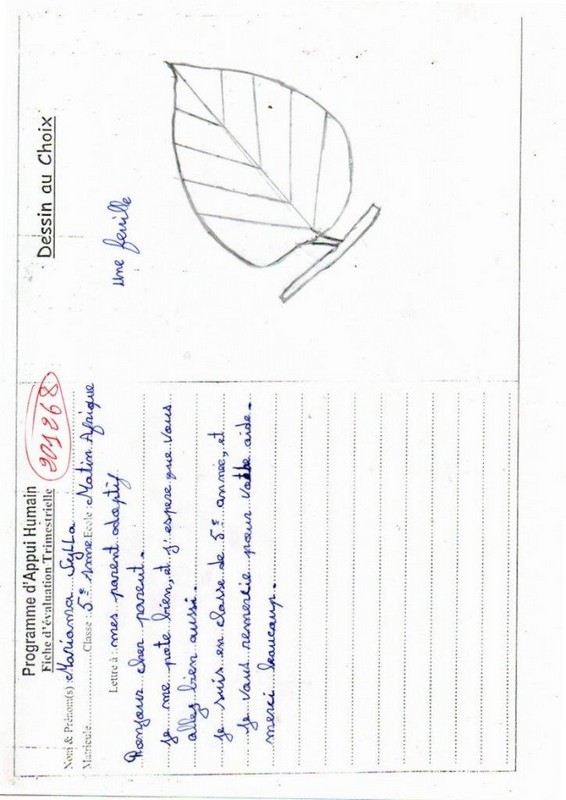 Programme d'Appui Humain
Fiche d'évaluation Trimestrielle
201268
Nom & Prénom(s) : Mariama Sylla
Matricule Classe : 5e Anne Ecole : Matin Afrique
Lettre à : mes parent adoptif
Bonjour cher parent.
Je me pote bien, et j'espere que vous
allez bien aussi.
Je suis en classe de 5e année, et
Je vous remercie pour votre aide.
merci beaucoup.
Dessin au Choix
une feuille